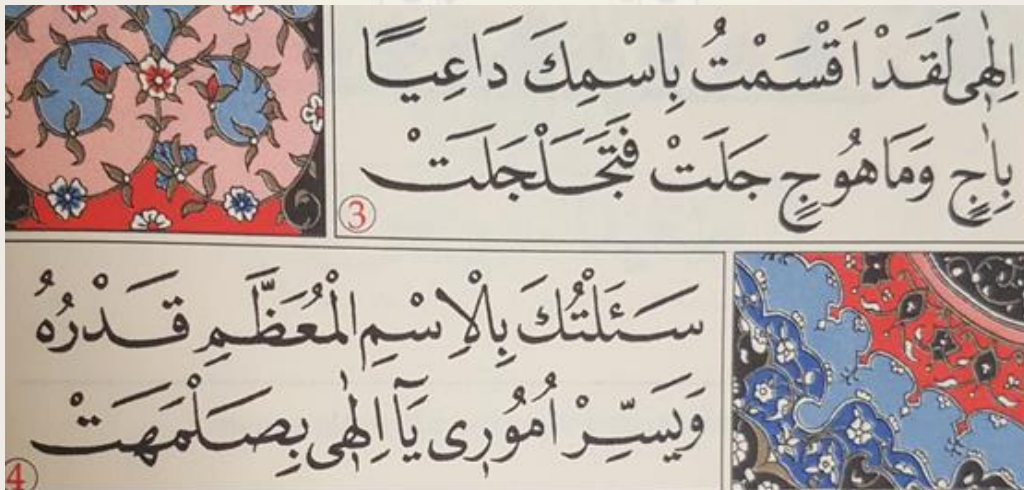 اِلٰهٖى لَقَدْ اَقْسَمْتُ بِاسْمِكَ دَاعِيًا
بِاٰجٍ وَمَا هُوجٍ جَلَتْ فَتَجَلْجَلَتْ
3
سَئَلْتُكَ بِالْاِسْمِ الْمُعَظَّمِ قَدْرُهُ
وَيَسِّرْ اُمُورٖى يَٓا اِلٰهٖى بِصَلْمَهَتْ
4